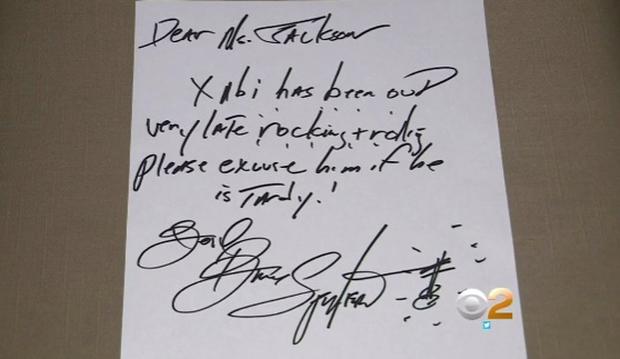 Dear Ms. Jackson
Xabi has been out
very late rocking + rolling
please excuse him if he
is Tardy!
Bruce Springsteen
2